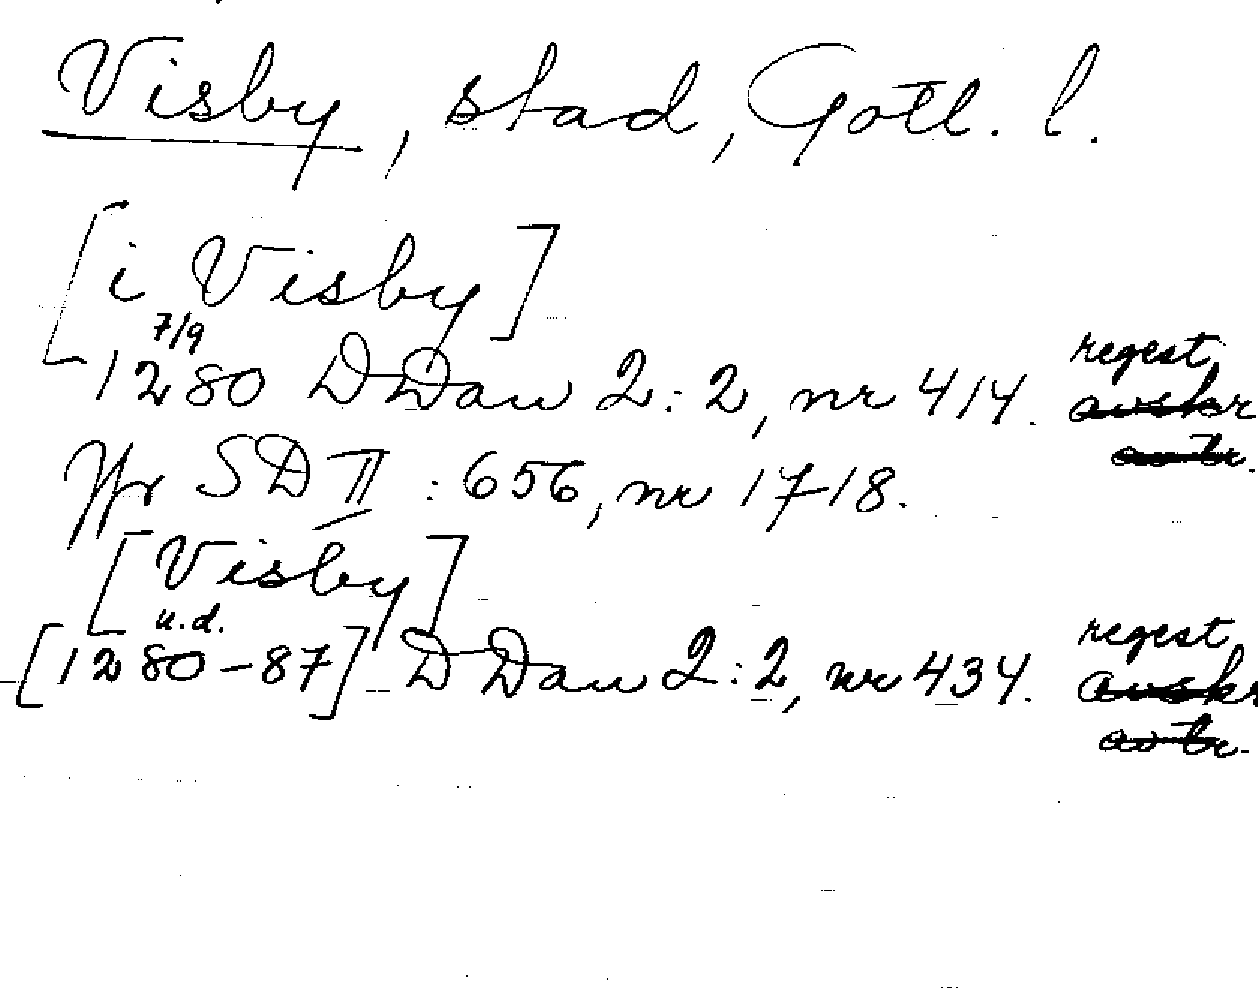 Visby, stad, Gotl. l.
[i Visby]
7/9
1280 DDan 2:2, nr 414. regest
avskr
av br.
Jfr SD II : 656, nr 1718.
[Visby]
u.d.
[1280-87] DDan 2:2, nr 434. regest
avskr
av br.